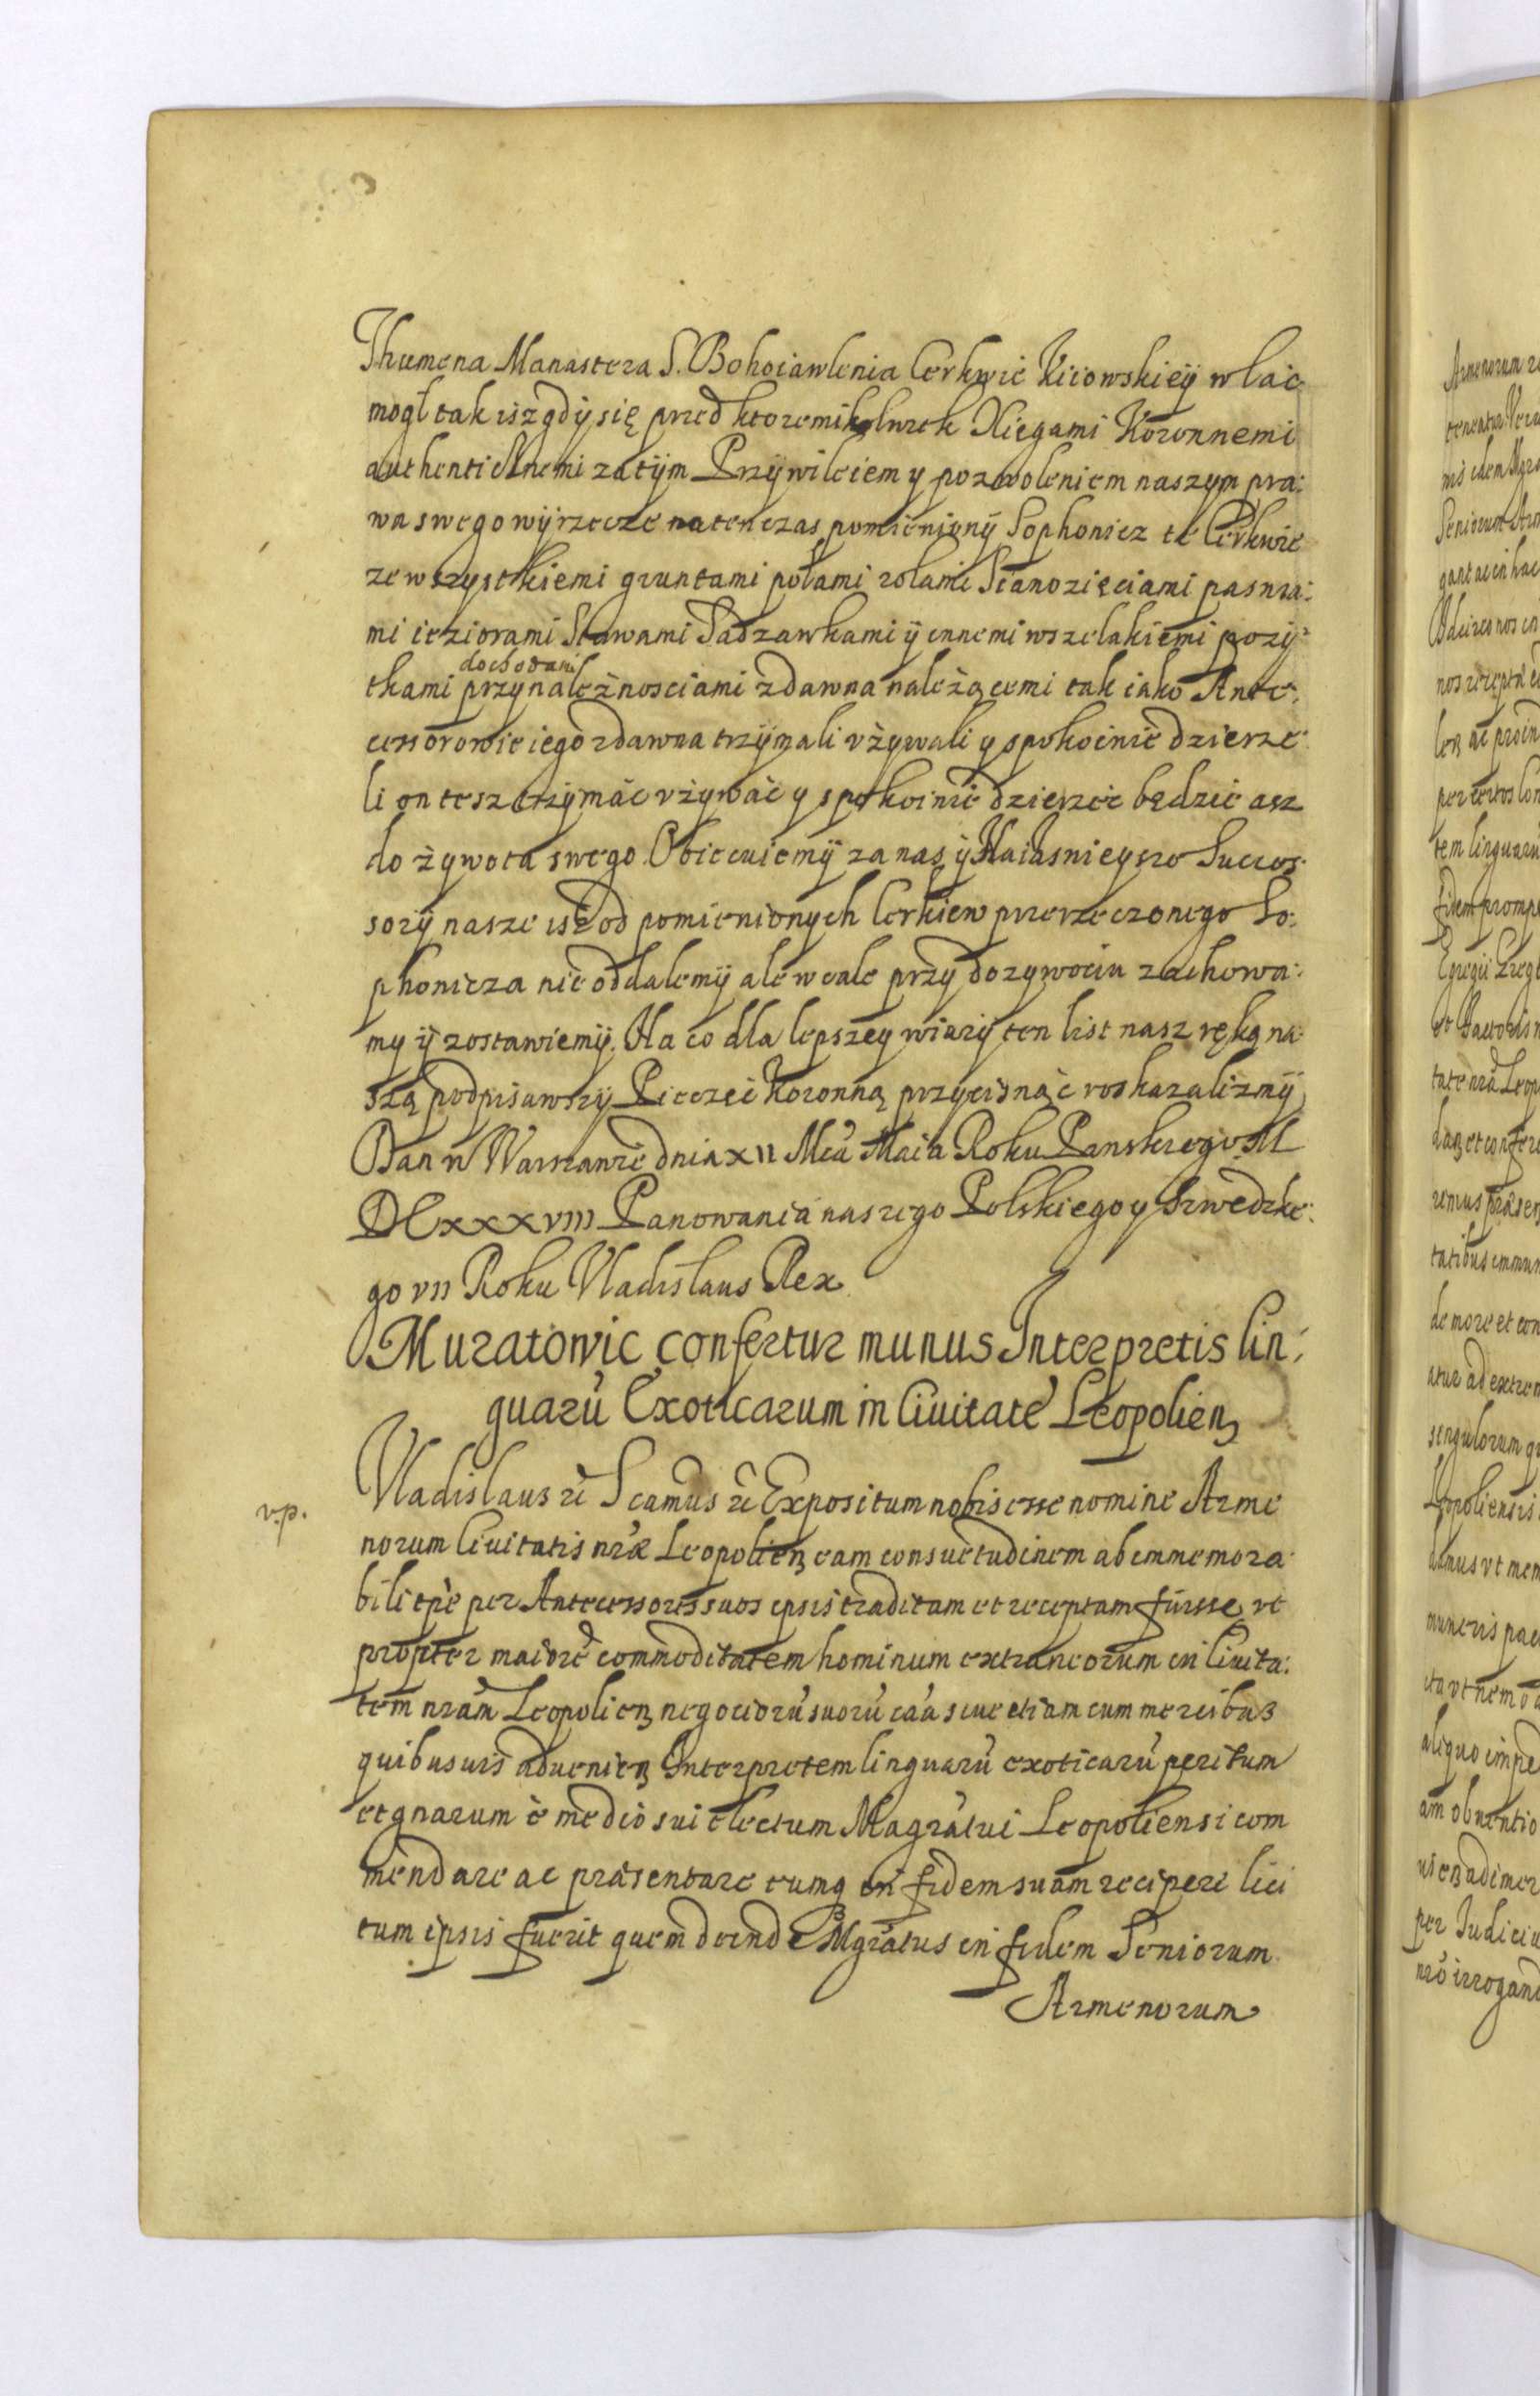 Ihumena Manastera S. Bohoiawlenia Cerkwie Kiiowskieÿ wlac
mogł tak isz gdÿ się przed ktoremikolwek Xięgami Koronnemi
authentic​znemi za tÿm Przÿwileiem y pozwoleniem naszym pra:
wa swego wÿrzecze na ten czas pomienionÿ Sophonicz te Cerkwie
ze wszystkiemi gruntami polami rolami Sianozięciami pasnia:
mi ieziorami Stawami Sadzawkami ÿ innemi wszelakiemi pozÿ:
dochodami
tkami przynależnosciami zdawna należącemi tak iako Ante:
cessorowie iego zdawna trzÿmali vżywali y spokoinie dzierze:
li on tesz trzÿmać vżywać y spokoinie dzierzeć będzie asz
do żywota swego. Obiecuiemÿ za nas ÿ Naiasnieysze Succes:
sorÿ nasze isz od pomienionych Cerkiew przerzeczonego So:
phonicza nie oddalemÿ ale wcale przÿ dozywociu zachowa:
my ÿ zostawiemÿ. Na co dla lepszey wiarÿ ten list nasz ręką na:
szą podpisawszÿ Pieczęć Koronną przycisnąć roskazalizmÿ
Dan w Warszawie dnia XII Mca Maia Roku Panskiego M
DCXXXVIII Panowania naszego Polskiego y Szwedzkie:
go VII Roku Vladislaus Rex
Muratowic confertur munus Interpretis lin:
guarũ Exoticarum in Ciuitate Leopolien
v.p.
Vladislaus etc Scamus etc Expositum nobis esse nomine Arme
norum Ciuitatis nrae Leopolien eam consuetudinem ab immemora
bili tpe per Antecessores suos ipsis traditam et receptam fuisse, vt
propter maiorẽ commoditatem hominum extraneorum in Ciuita:
tem nram Leopolien negociorũ suorũ caa siue etiam cum mercibus
quibusuis aduenien Interpretem linguarũ exoticarũ peritum
et gnarum è medio sui electum Magratui Leopoliensi com
mendare ac præsentare eumq in fidem suam recipere lici
tum ipsis fuerit quem deinde Mgratus in fidem Seniorum
Armenorum